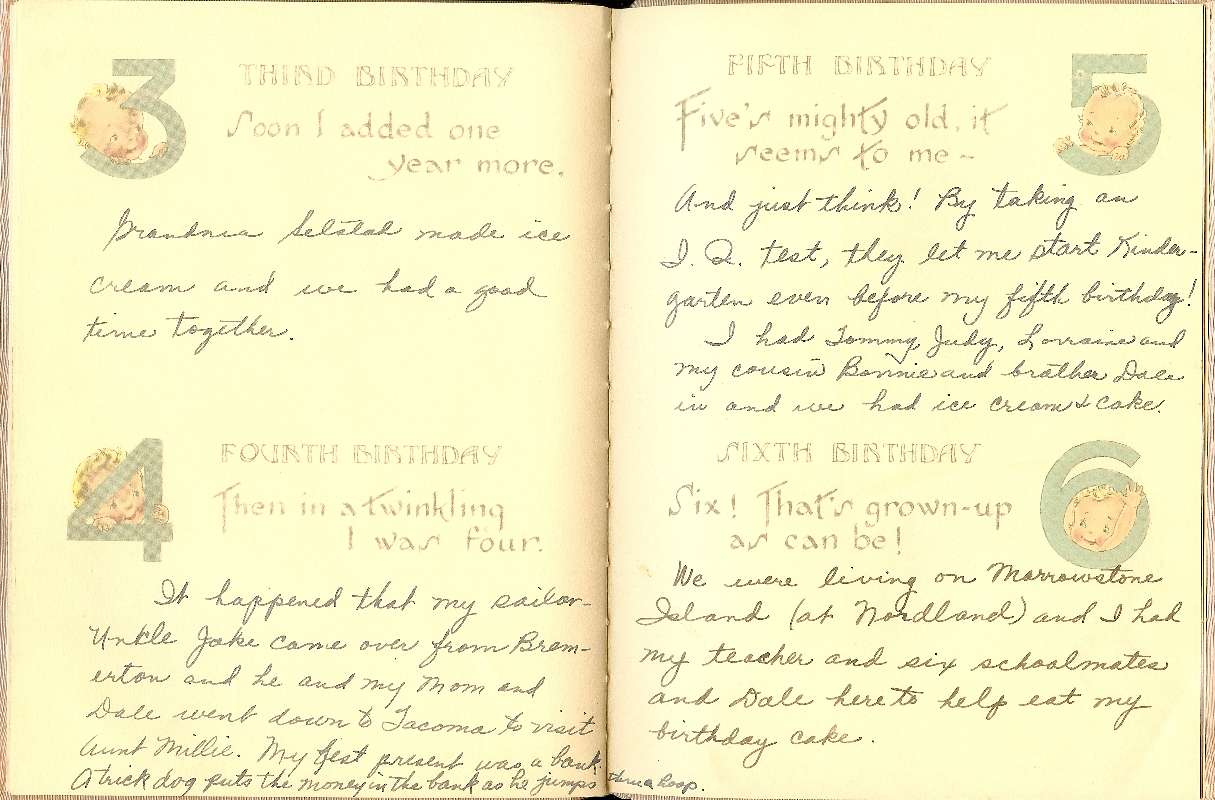 3
THIRD BIRTHDAY
Soon I added one
year more.
Grandma Selstad made ice
cream and we had a good
time together.
4
FOURTH BIRTHDAY
Then in a twinkling
I was four.
It happened that my sailor-
Unkle Jake came over from Brem-
erton and he and my Mom and
Dale went down to Tacoma to visit
Aunt Millie. My best present was a bank.
A trick dog puts the money in the bank as he jumps thru a hoop.
5
FIFTH BIRTHDAY
Five's mighty old, it
seems to me ~
And just think! By taking an
I. Q. test, they let me start Kinder-
garten even before my fifth birthday!
I had Tommy, Judy, Lorraine and
my cousin Bonnie and brother Dale
in and we had ice cream & cake.
6
SIXTH BIRTHDAY
Six! That's grown-up
as can be!
We were living on Marrowstone
Island (at Nordland) and I had
my teacher and six schoolmates
and Dale here to help eat my
birthday cake.